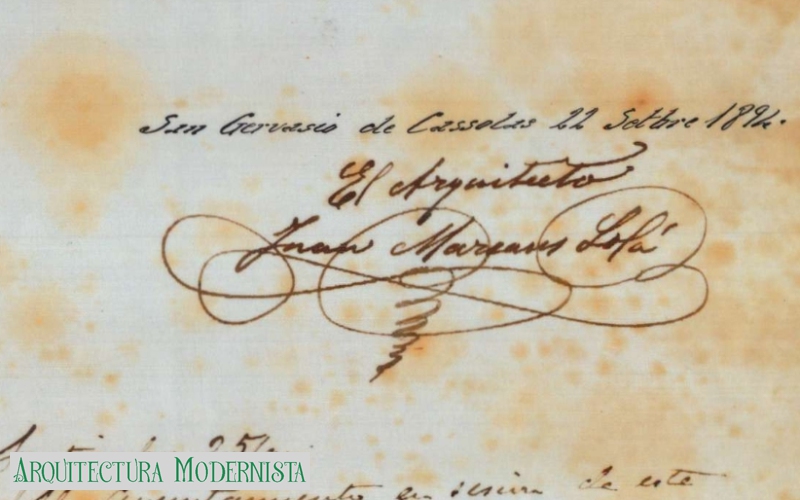 San Gervasio de Cassolas 22 Setbre 1894.
El Arquitecto
Juan Marsans Solá
ARQUITECTURA MODERNISTA
Ayuntamiento en sesion de este